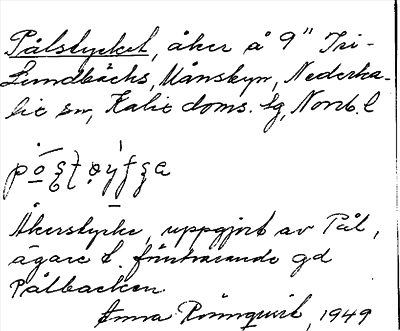 Pålstycket, åker å 9" Tri-
Lundbäcks, Månsbyn, Nederka-
lix sn, Kalix doms. lg, Norrb. l
Åkerstycke, uppgjort av Pål,
ägare t. förutvarande gd
Pålbacken.
Anna Rönnqvist, 1949